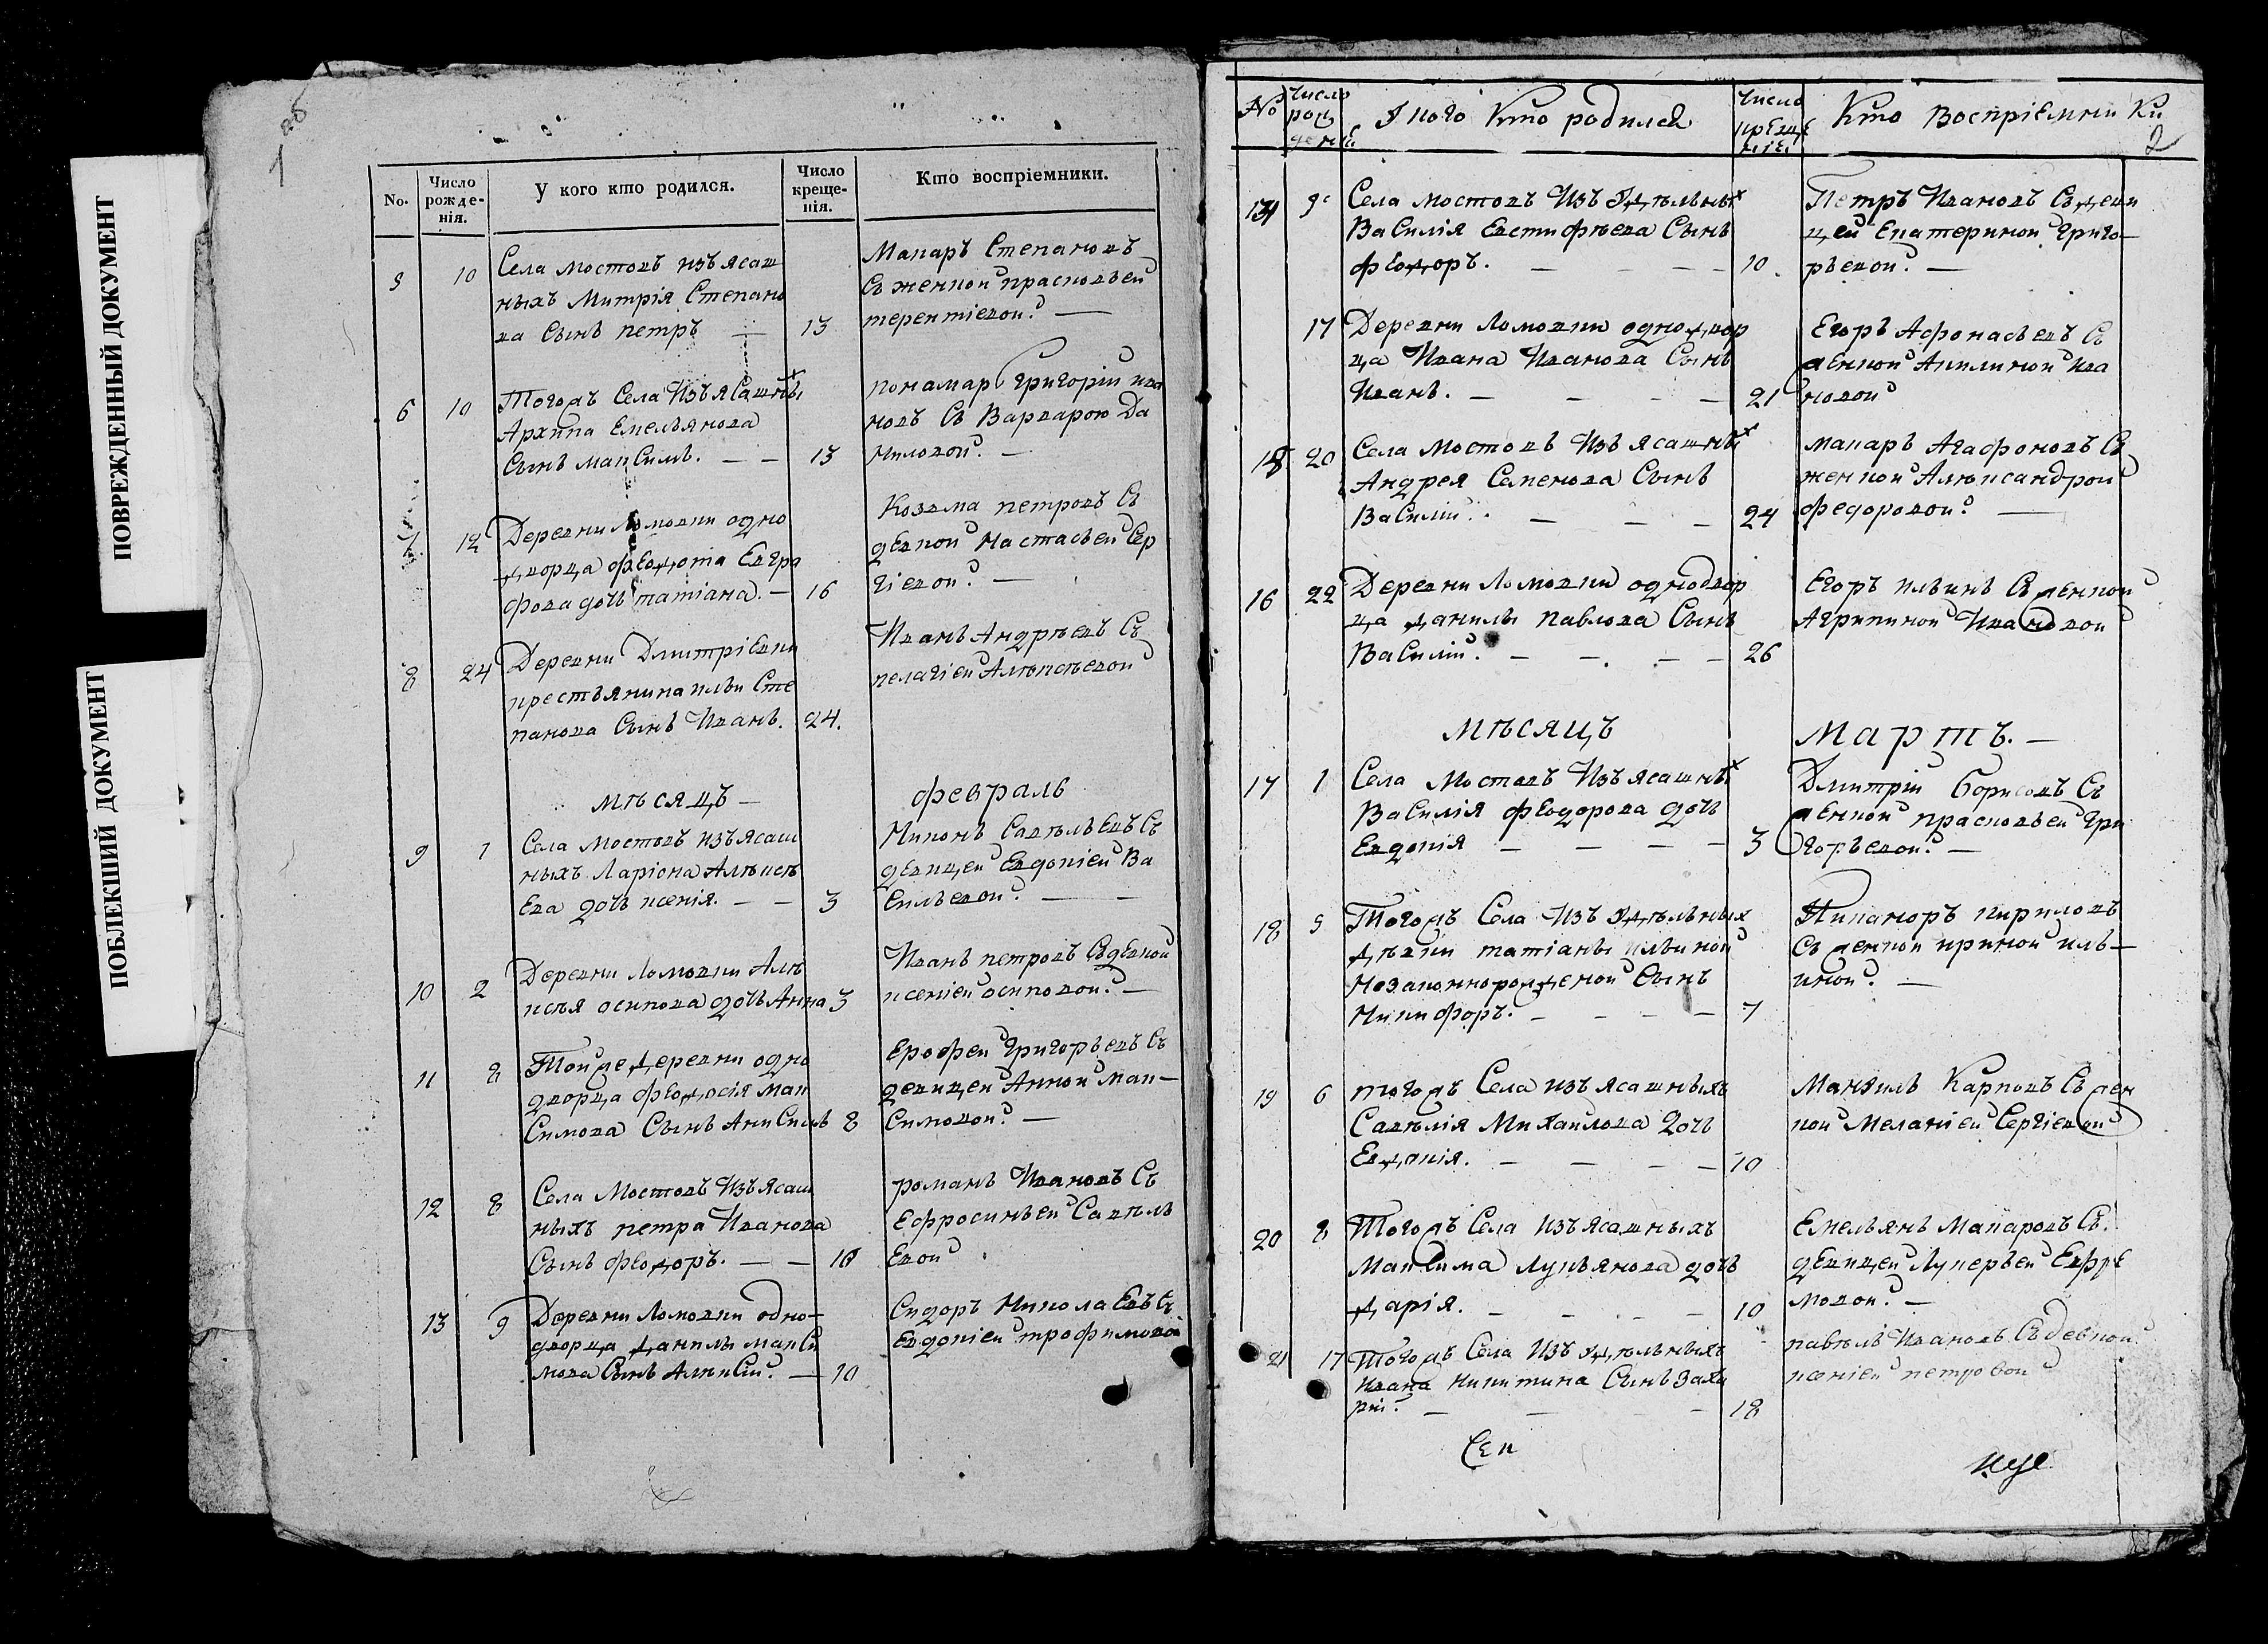 ПОВРЕЖДЕННЫЙ ДОКУМЕНТ
ПОБЛЕКШИЙ ДОКУМЕНТ
1
No.
Число рожде-нія.
У кого кто родился.
Число креще-нія.
Кто воспріемники.
5 10 Села мостовъ изъ ясаш
ныхъ Митрія Степано
ва Сынъ петръ — 13
Макаръ Степановъ
Съ женкой прасковьей
терентіевой. —
6 10 Тогожъ Села Изъ ясашныхъ
Архипа Емельянова
Сынъ максимъ. — — 13
понамар Григорій ива
новъ Съ Варварою Да
ниловой. —
7 12 Деревни Ломовки одно
дворца феодота Евгра
фова дочь татіана. — 16
Козма петровъ Съ
девкой Настасьей Сер
гіевой. —
8 24 Деревни Дмитріевки
крестьянина ильи Сте
панова Сынъ Иванъ. 24.
Иванъ Андрѣевъ Съ
пелагіей Алѣксѣевой
мѣсяцъ — февраль
9 1 Села мостовъ изъ ясаш
ныхъ Ларіона Алѣксѣ
Ева дочь ксенія. — — 3
Никонъ Савѣльевъ Съ
девицей Евдокіей Ва
Сильевой. — —
10 2 Деревни Ломовки Алѣ
ксѣя осипова дочь Анна 3
Иванъ петровъ Съ девкой
ксеніей осиповой. —
11 8 Тойже деревни одно
дворца феодосія мак
Симова Сынъ АниСимъ 8
Ерофей Григорьевъ Съ
девицей Анной мак—
Симовой. —
12 8 Села Мостовъ Изъ ясаш
ныхъ петра Иванова
Сынъ феодоръ. — — 10
романъ Ивановъ Съ
Ефросиньей Савѣль
Евой
13 9 Деревни Ломовки одно—
дворца данилы макси
мова Сынъ АлѣкСѣй. — 10
Сидоръ НиколаЕвъ Съ
Евдокіей трофимовой
No
Число рожденій
У кого Кто родился
Число крещенія
Кто Воспріемники
2
14 9 Села мостовъ Изъ Удѣльныхъ
ВаСилія Евстифѣева Сынъ
феодоръ. — — — 10.
Петръ Ивановъ Съ деви
цей Екатериной Григо—
рьевой. —
17 Деревни Ломовки однодвор
ца Ивана Иванова Сынъ
Иванъ. — — — 21
Егоръ Афонасьевъ Съ
женкой Акилиной Ива
новой
20 Села мостовъ Изъ ясашныхъ
Андрея Семенова Сынъ
ВаСилій. — — — 24
макаръ Агафоновъ Съ
женкой Алѣксандрой
федоровой. —
16 22 Деревни Ломовки однодвор
ца данилы павлова Сынъ
ВаСилій. — — — 26
Егоръ ильинъ Съ женкой
Агрипиной Ивановой
мѣсяцъ Мартъ. —
17 1 Села мостовъ Изъ ясашныхъ
ВаСилія феодорова дочь
Евдокія — — — 3
Дмитрій борисовъ Съ
женкой прасковьей Гри
горьевой. —
18 5 Тогожъ Села Изъ Удѣльных
дѣвки татіаны ильиной
незаконнорожденой Сынъ
Никифоръ. — — — 7
Никаноръ кириловъ
Съ женкой ириной иль—
иной. —
19 6 тогожъ Села изъ ясашныхъ
Савѣлія Михайлова дочь
Евдокія. — — — 10
Мануилъ Карповъ Съ жен
кой меланіей Сергіевой
20 8 Тогожъ Села изъ ясашныхъ
МакСима Лукьянова дочь
дарія. — — — 10
Емельянъ Макаровъ Съ
девицей Лукерьей Ефре
мовой. —
21 17 Тогожъ Села Изъ удѣльныхъ
Ивана никитина Сынъ Заха
рій. — — — 18
павѣлъ Ивановъ Съ девкой
ксеніей петровой